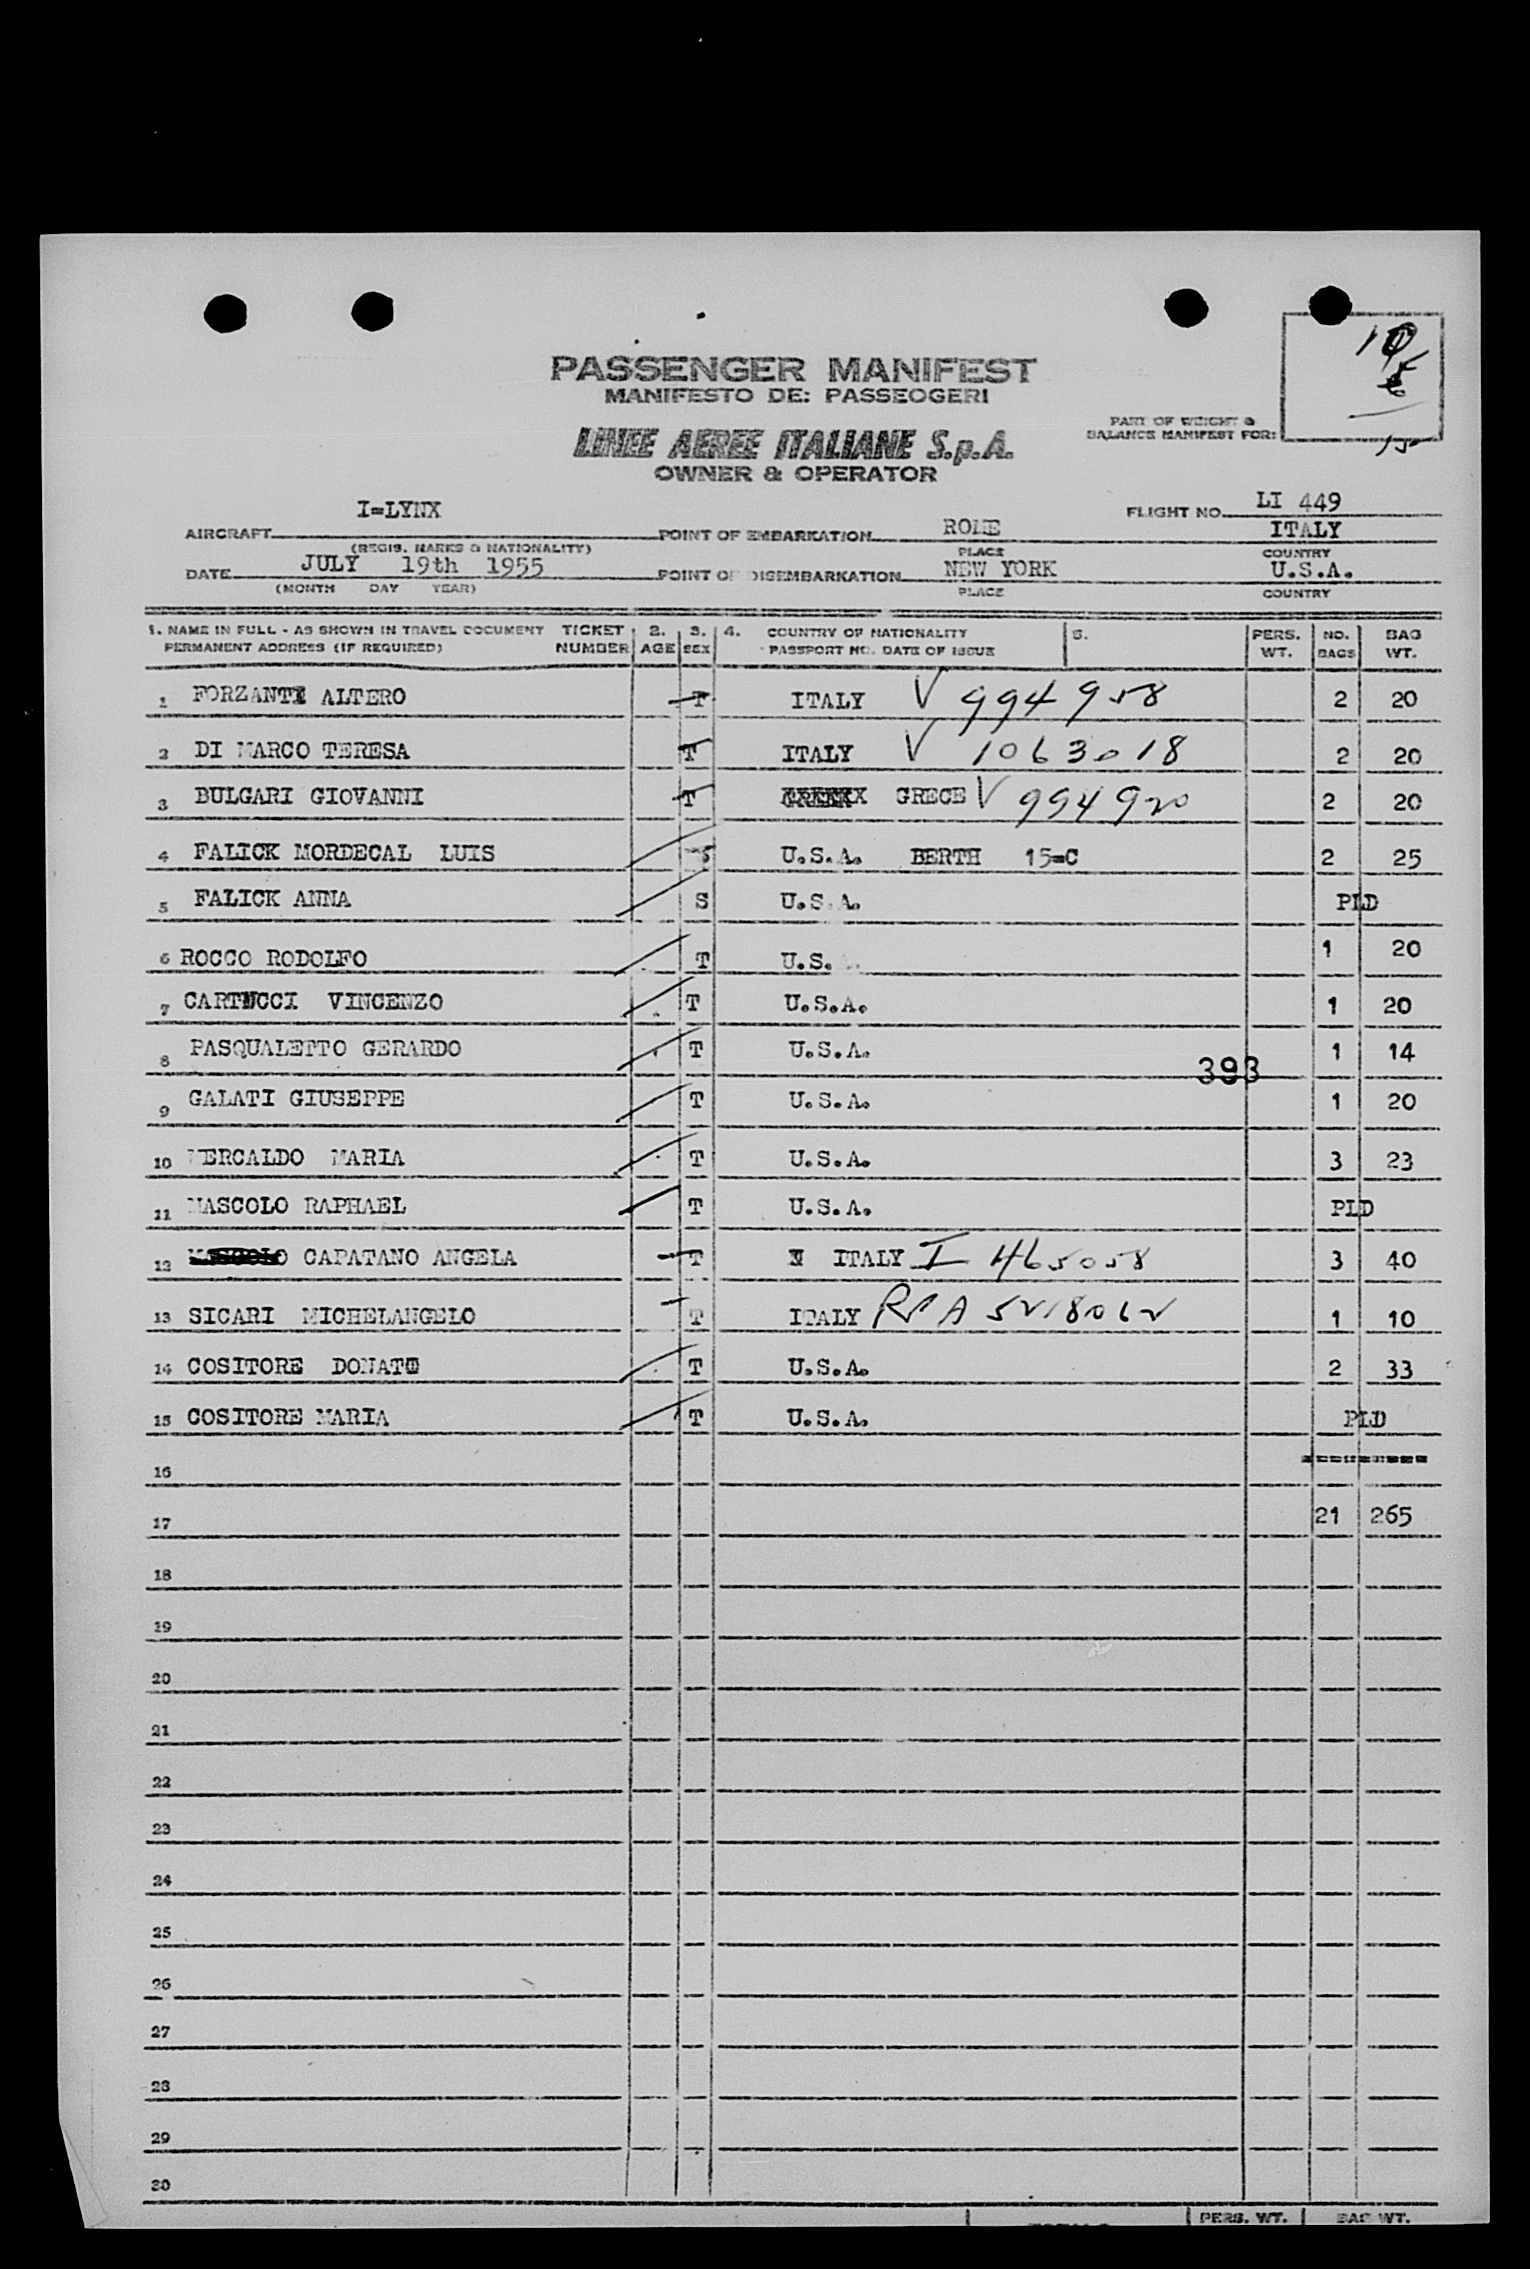 10
5
15
PASSENGER MANIFEST
MANIFESTO DE: PASSEOGERI
PART OF WEIGHT &
BALANCE MANIFEST FOR:
LINEE AEREE ITALIANE S.p.A.
OWNER & OPERATOR
AIRCRAFT I=LYNX FLIGHT NO. LI 449
(REGIS. MARKS & NATIONALITY) POINT OF EMBARKATION ROME ITALY
PLACE COUNTRY
DATE JULY 19th 1955 POINT OF DISEMBARKATION NEW YORK U.S.A.
(MONTH DAY YEAR) PLACE COUNTRY
1. NAME IN FULL - AS SHOWN IN TRAVEL DOCUMENT TICKET 2. 3. 4. COUNTRY OF NATIONALITY 5. PERS. NO. BAG
PERMANENT ADDRESS (IF REQUIRED) NUMBER AGE SEX PASSPORT NO. DATE OF ISSUE WT. BAGS WT.
1 FORZANTI ALTERO T ITALY V 994958 2 20
2 DI MARCO TERESA T ITALY V 1063018 2 20
3 BULGARI GIOVANNI T GRECE V 994920 2 20
4 FALICK MORDECAL LUIS S U.S.A. BERTH 15=C 2 25
5 FALICK ANNA S U.S.A. PLD
6 ROCCO RODOLFO T U.S. 1 20
7 CARTUCCI VINCENZO T U.S.A. 1 20
8 PASQUALETTO GERARDO T U.S.A. 1 14
393
9 GALATI GIUSEPPE T U.S.A. 1 20
10 MERCALDO MARIA T U.S.A. 3 23
11 MASCOLO RAPHAEL T U.S.A. PLD
12 CAPATANO ANGELA T ITALY I 465058 3 40
13 SICARI MICHELANGELO T ITALY 1 10
14 COSITORE DONATO T U.S.A. 2 33
15 COSITORE MARIA T U.S.A. PLD
16
17 21 265
18
19
20
21
22
23
24
25
26
27
28
29
30
PERS. WT. BAG WT.